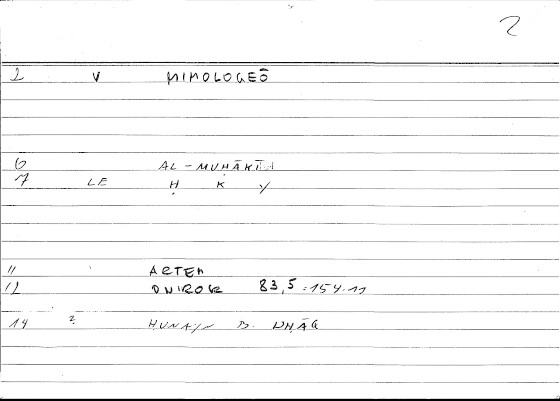 2
2 V MIMOLOGEŌ
6 AL-MUḤĀKĪ
7 LE Ḥ K Y
11 ARTEM
12 ONIROK 83,5:154.11
14 2 HUNAYN B.